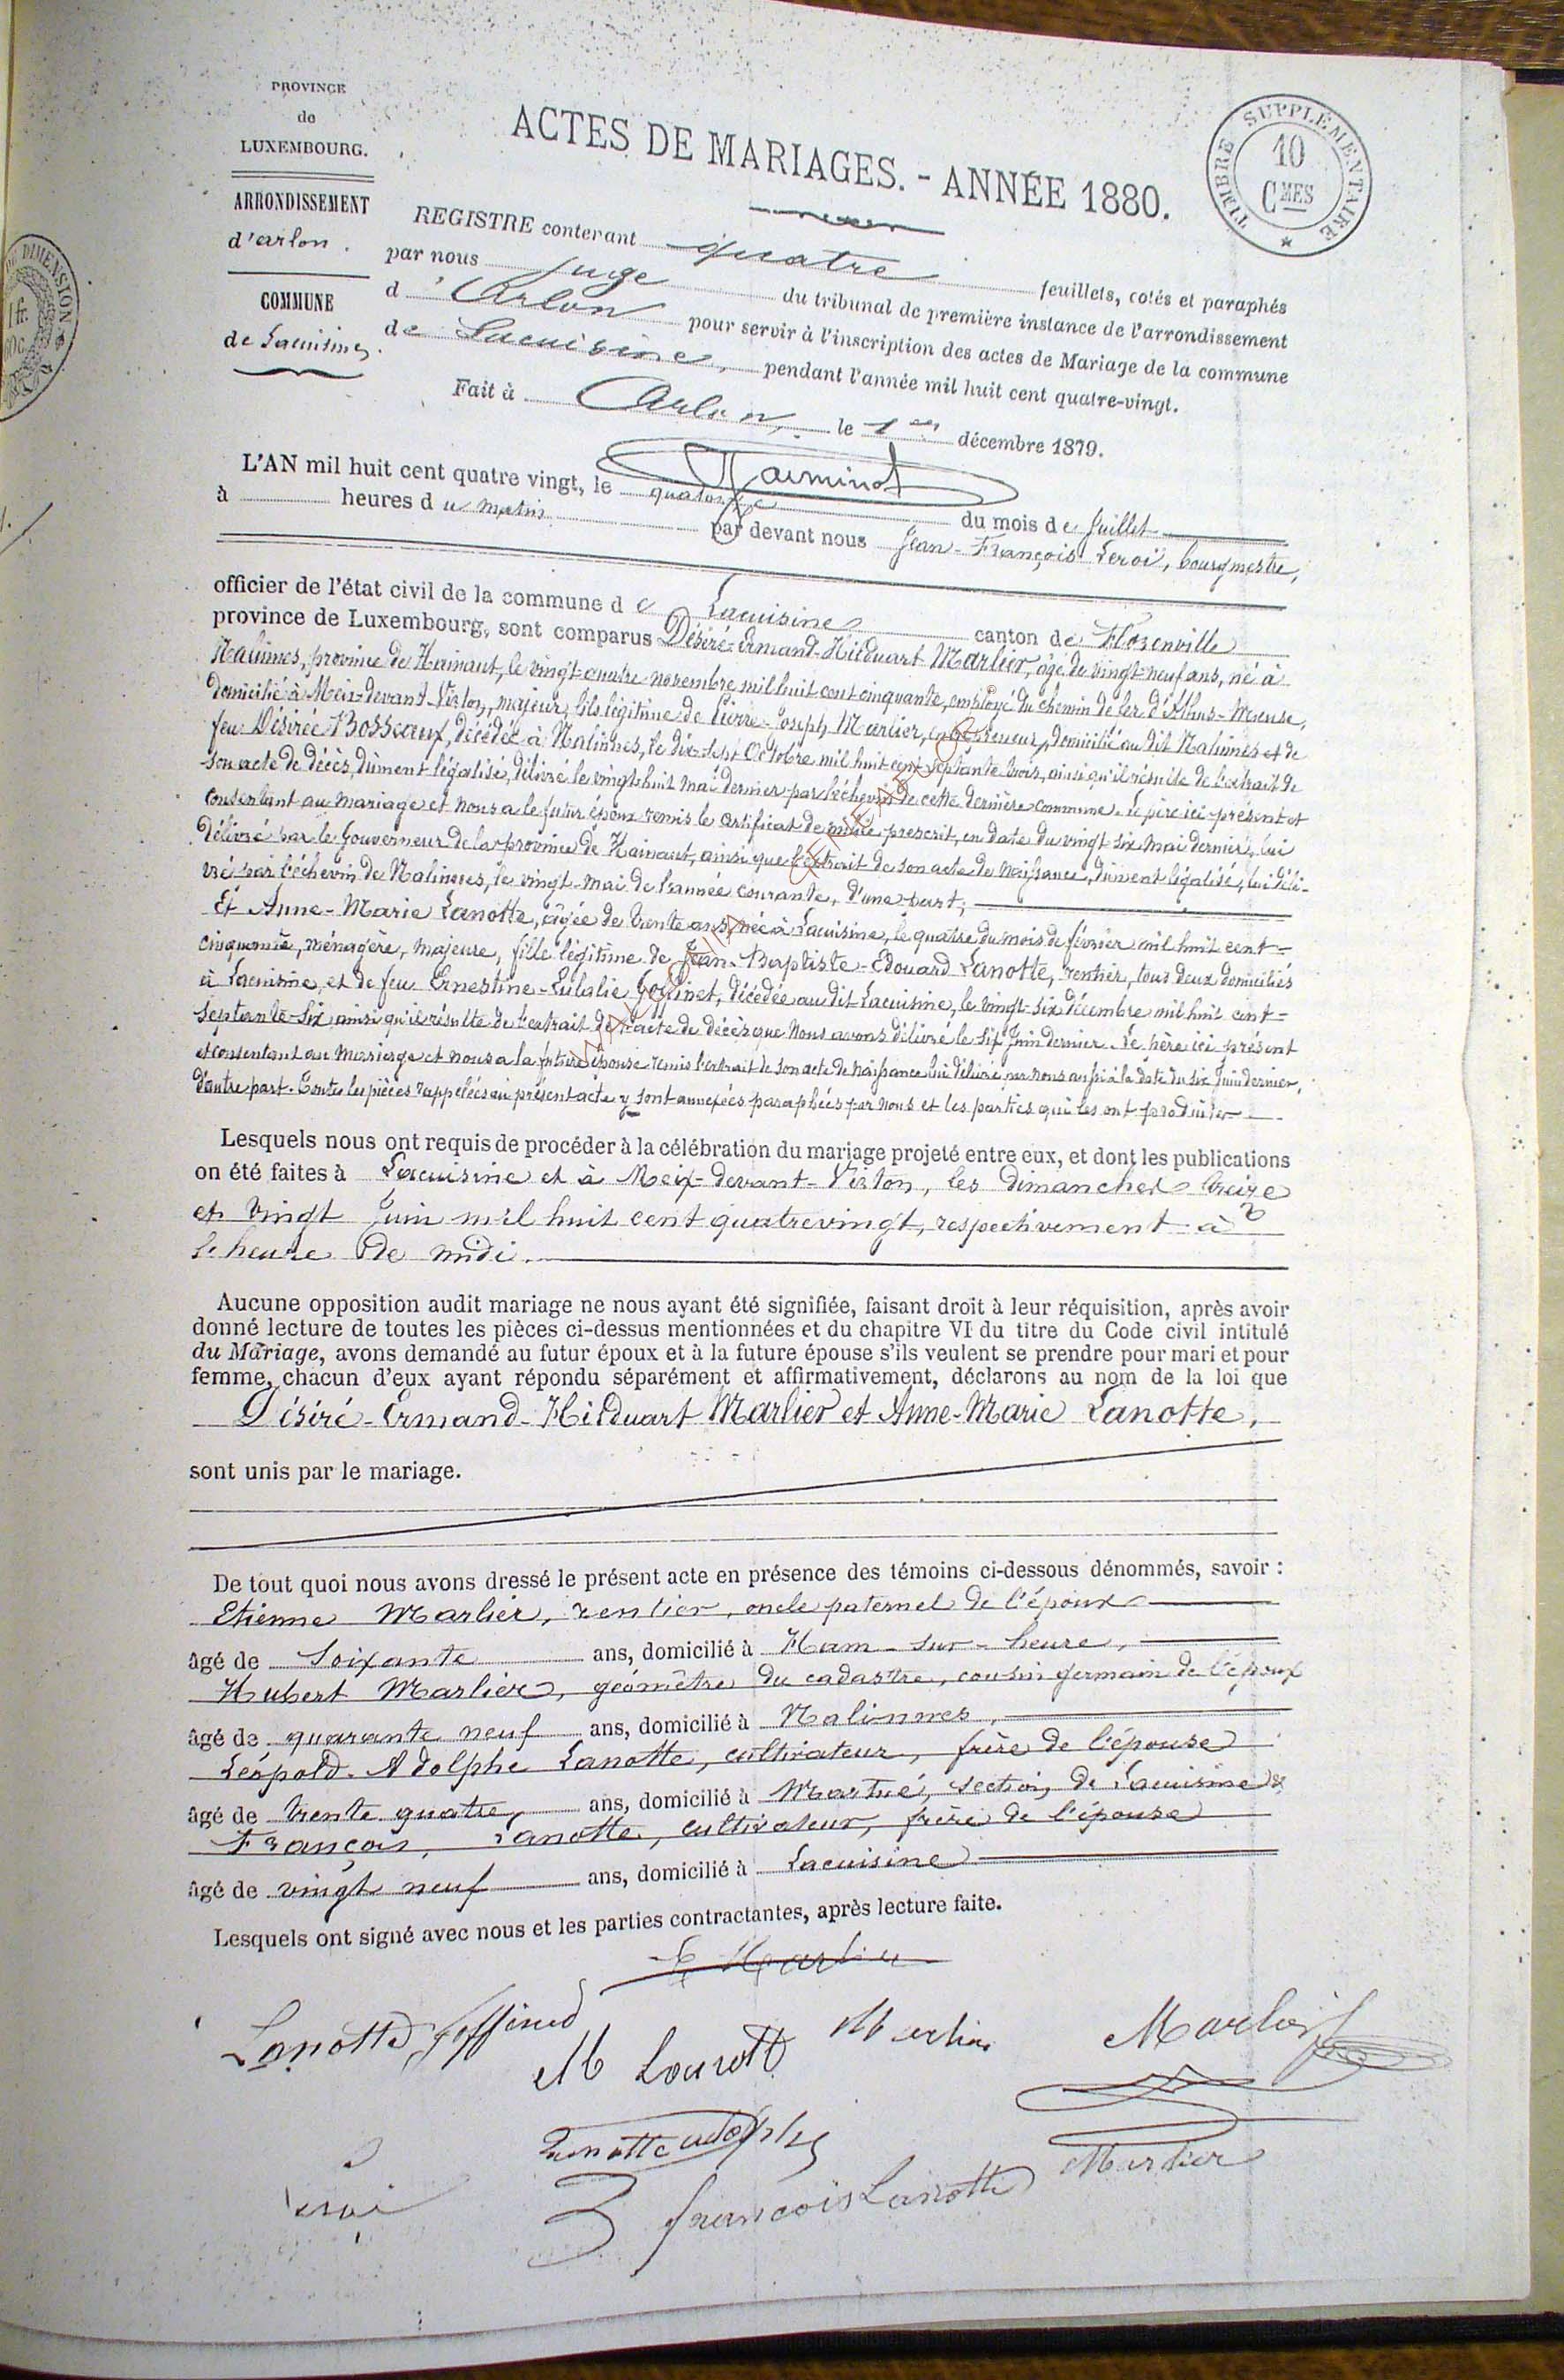 PROVINCE
de
LUXEMBOURG.
ARRONDISSEMENT
d'arlon.
COMMUNE
de Lacuisine
ACTES DE MARIAGES. - ANNÉE 1880.
TIMBRE SUPPLÉMENTAIRE
10
CMES
DIMENSION
1 fr.
REGISTRE contenant quatre feuillets, cotés et paraphés
par nous juge du tribunal de première instance de l'arrondissement
d'Arlon pour servir à l'inscription des actes de Mariage de la commune
de Lacuisine, pendant l'année mil huit cent quatre-vingt.
Fait à Arlon, le 1er décembre 1879.
L'AN mil huit cent quatre vingt, le quatorze du mois de Juillet
à heures du matin par devant nous Jean-François Leroi, bourgmestre,
officier de l'état civil de la commune de Lacuisine canton de Florenville
province de Luxembourg, sont comparus Désiré-Ermand-Hilduart Marlier, âgé de vingt-neuf ans, né à
Nalinnes, province de Hainaut, le vingt-quatre novembre mil huit cent cinquante, employé du chemin de fer d'Athus-Meuse,
domicilié à Meix-devant-Virton, majeur, fils légitime de Pierre-Joseph Marlier, domicilié au dit Nalinnes et de
feu Désirée Bosseaux, décédée à Nalinnes, le dix-sept Octobre mil huit cent septante trois, ainsi qu'il résulte de l'extrait de
son acte de décès, dûment légalisé, délivré le vingt-huit mai dernier par l'échevin de cette dernière commune. Le père ici présent et
consentant au mariage et nous a le futur époux remis le certificat de milice prescrit, en date du vingt six mai dernier, lui
délivré par le Gouverneur de la province de Hainaut, ainsi que l'extrait de son acte de naissance, dûment légalisé, lui déli-
vré par l'échevin de Nalinnes, le vingt mai de l'année courante, d'une part,
Et Anne-Marie Lanotte, âgée de trente ans, née à Lacuisine, le quatre du mois de février mil huit cent-
cinquante, ménagère, majeure, fille légitime de Jean-Baptiste-Edouard Lanotte, rentier, tous deux domiciliés
à Lacuisine, et de feu Ernestine-Eulalie Goffinet, décédée au dit Lacuisine, le vingt-six décembre mil huit cent-
septante-six, ainsi qu'il résulte de l'extrait de l'acte de décès que nous avons délivré le six Juin dernier. Le père ici présent
et consentant au mariage et nous a la future épouse remis l'extrait de son acte de naissance lui délivré par nous aussi à la date du six Juin dernier,
d'autre part. Toutes les pièces rappelées au présent acte y sont annexées paraphées par nous et les parties qui les ont produites
Lesquels nous ont requis de procéder à la célébration du mariage projeté entre eux, et dont les publications
on été faites à Lacuisine et à Meix-devant-Virton, les dimanches treize
et vingt Juin mil huit cent quatrevingt, respectivement à
l'heure de midi.
Aucune opposition audit mariage ne nous ayant été signifiée, faisant droit à leur réquisition, après avoir
donné lecture de toutes les pièces ci-dessus mentionnées et du chapitre VI du titre du Code civil intitulé
du Mariage, avons demandé au futur époux et à la future épouse s'ils veulent se prendre pour mari et pour
femme, chacun d'eux ayant répondu séparément et affirmativement, déclarons au nom de la loi que
Désiré-Ermand-Hilduart Marlier et Anne-Marie Lanotte,
sont unis par le mariage.
De tout quoi nous avons dressé le présent acte en présence des témoins ci-dessous dénommés, savoir :
Etienne Marlier, rentier, oncle paternel de l'époux
âgé de Soixante ans, domicilié à Ham-sur-heure,
Hubert Marlier, géomètre du cadastre, cousin germain de l'époux
âgé de quarante neuf ans, domicilié à Nalinnes,
Léopold-Adolphe Lanotte, cultivateur, frère de l'épouse
âgé de trente quatre ans, domicilié à Martué, section de Lacuisine &
François Lanotte, cultivateur, frère de l'épouse
âgé de vingt neuf ans, domicilié à Lacuisine
Lesquels ont signé avec nous et les parties contractantes, après lecture faite.
E Marlier
Lanotte Goffined
M Lanotte
Marlier
Marlier
Lanotte adolphe
Marlier
François Lanotte